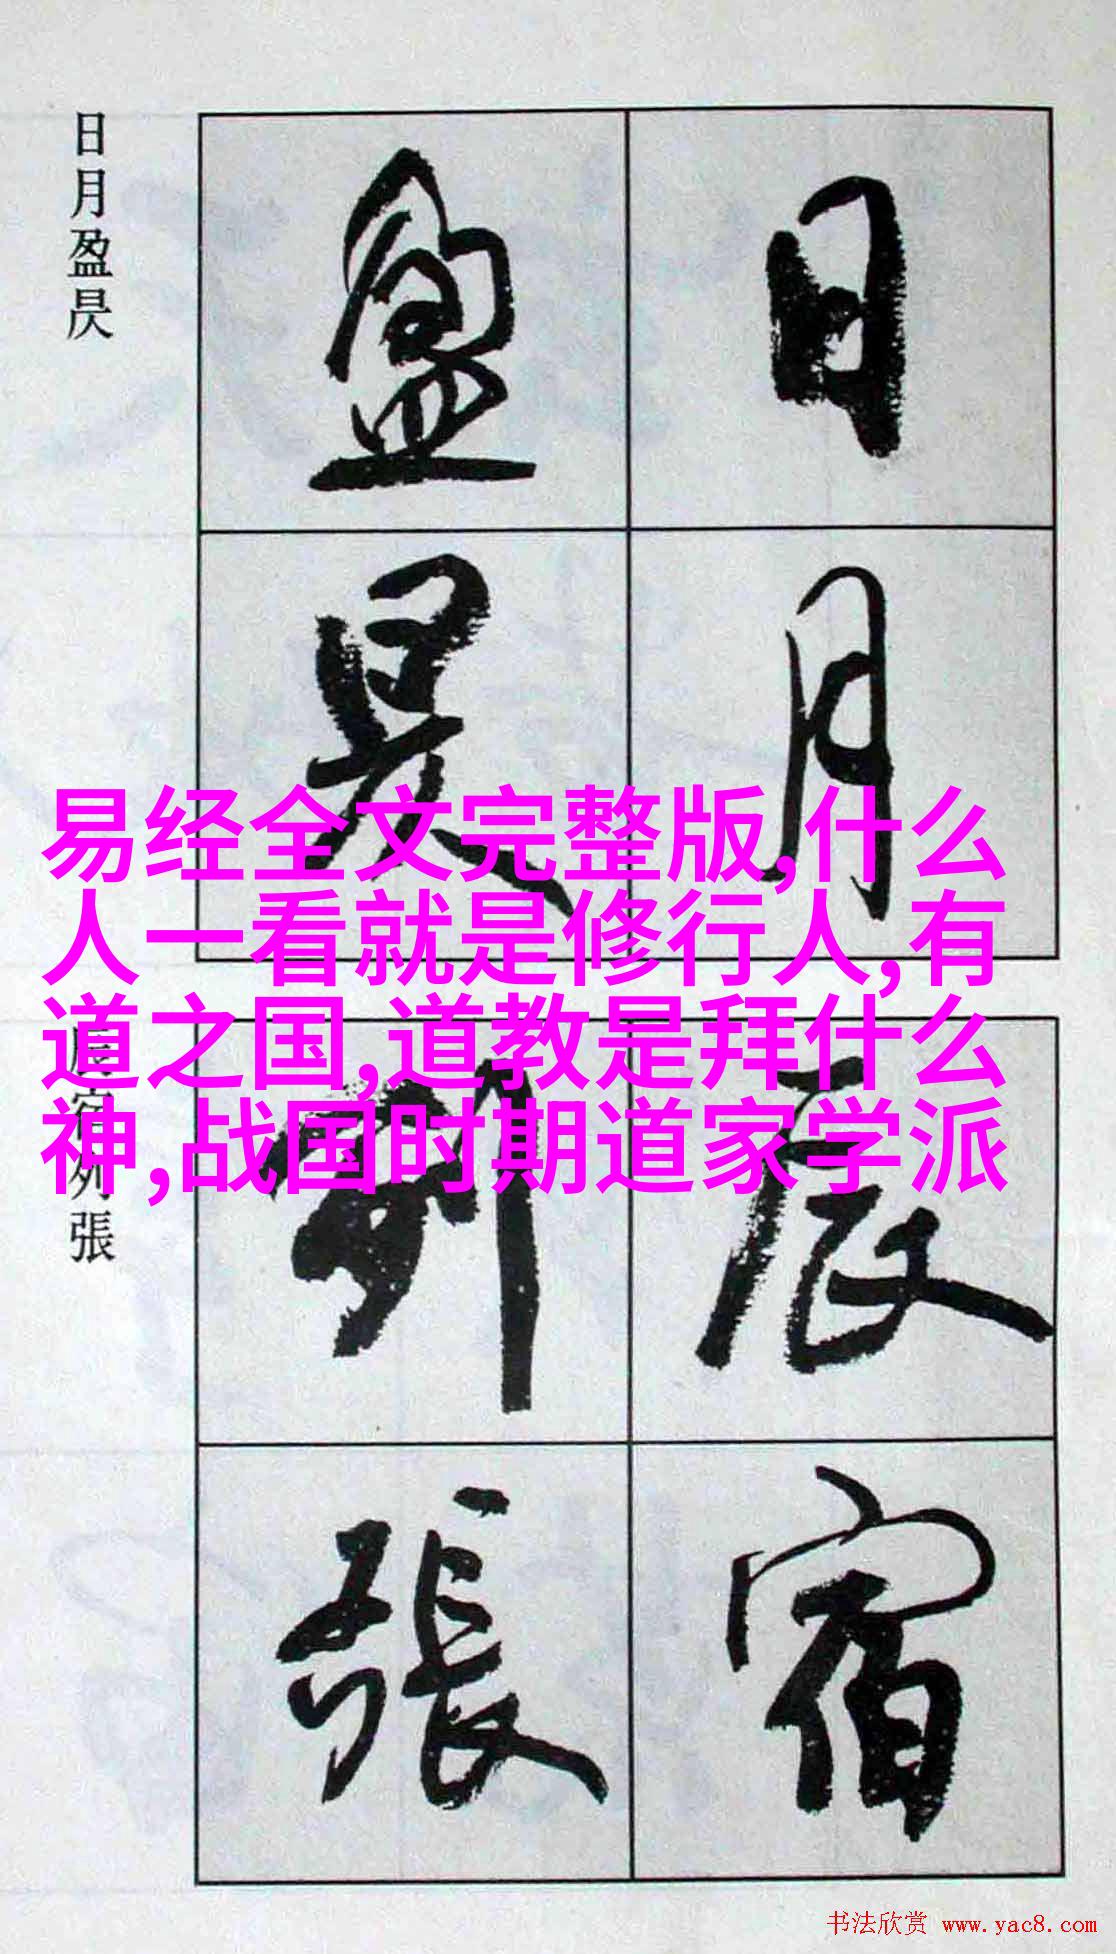 日月盈昃
日月
盈昃
易经全文完整版,什么
人一看就是修行人,有
道之国,道教是拜什么
神,战国时期道家学派
辰宿列張
辰宿
列張
书法欣赏 www.yac8.com